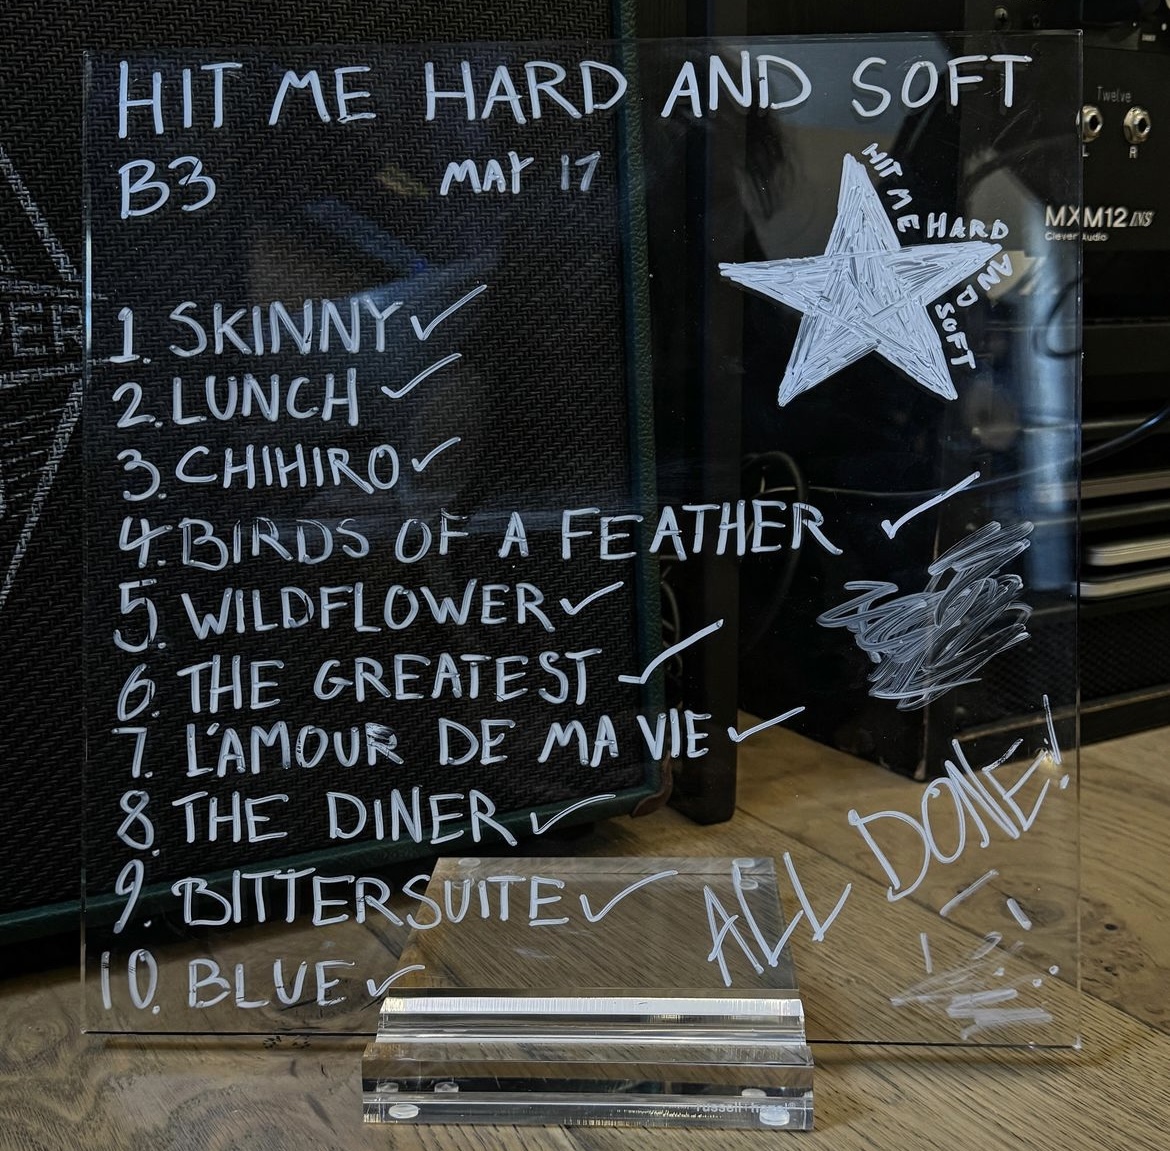 HIT ME HARD AND SOFT
B3 MAY 17
HIT ME HARD AND SOFT
Twelve
L R
MXM12 INS
Clever Audio
1. SKINNY ✓
2. LUNCH ✓
3. CHIHIRO ✓
4. BIRDS OF A FEATHER ✓
5. WILDFLOWER ✓
6. THE GREATEST ✓
7. L'AMOUR DE MA VIE ✓
8. THE DINER ✓
9. BITTERSUITE ✓
10. BLUE ✓
ALL DONE!